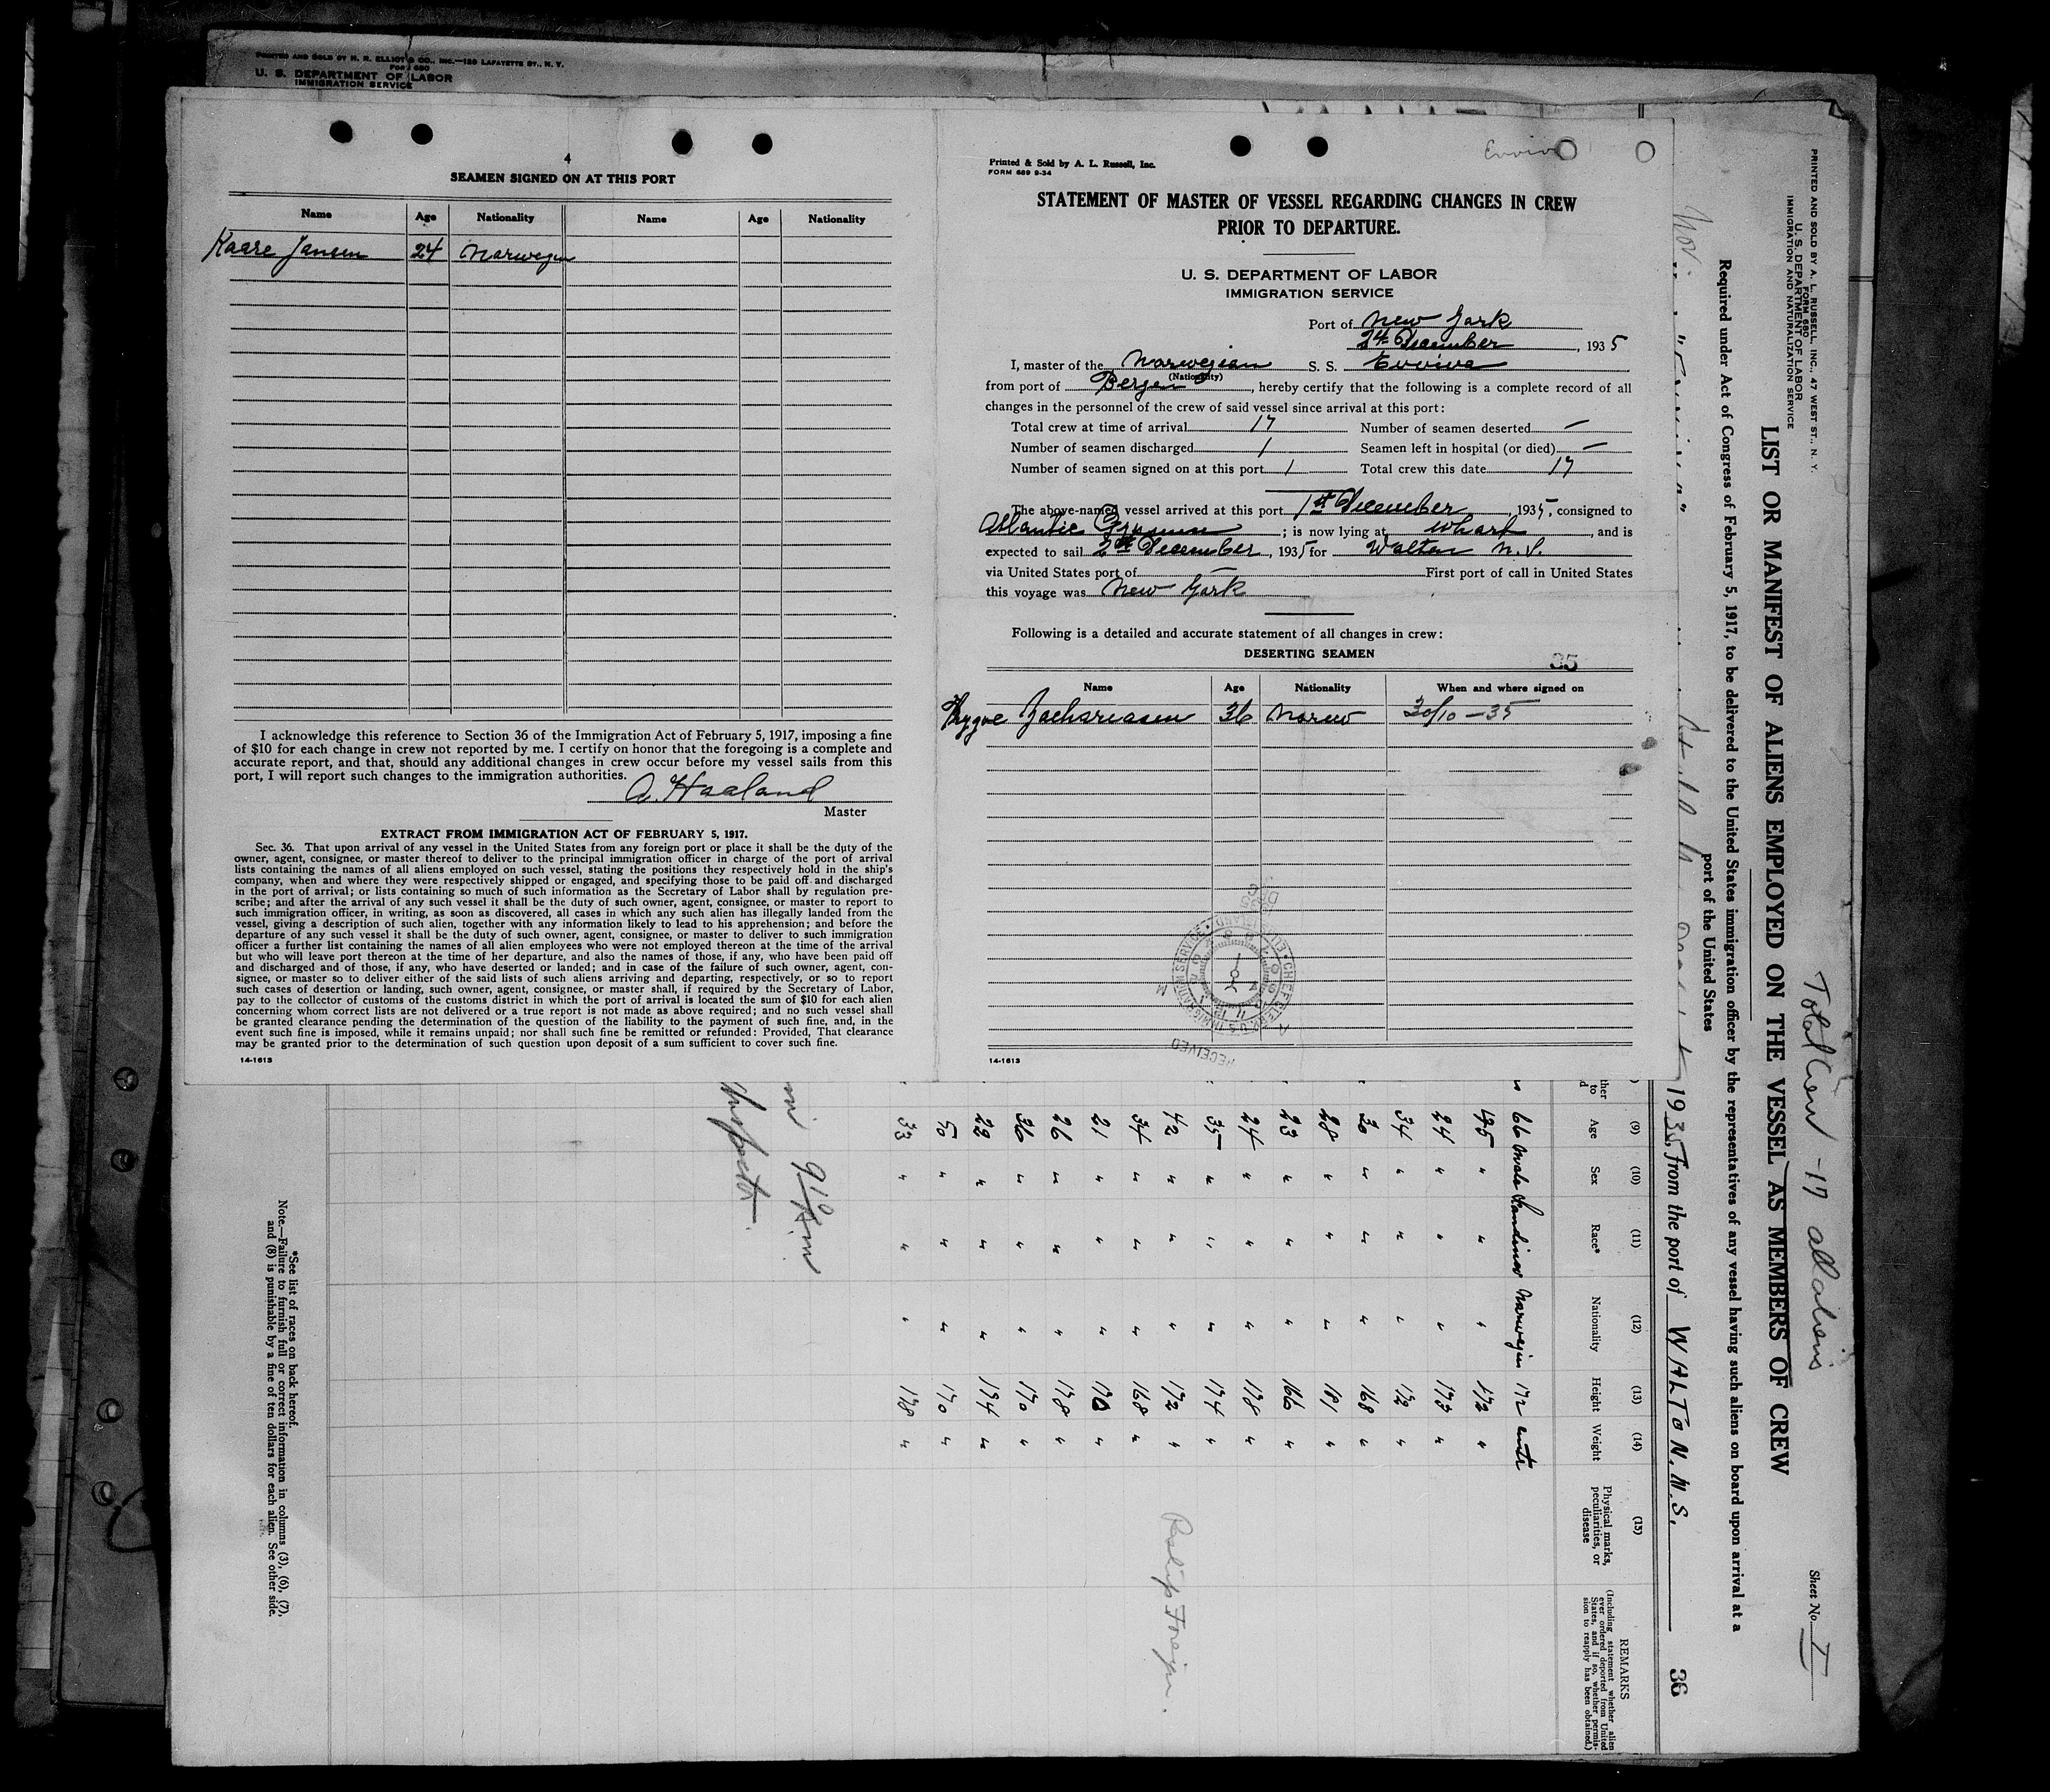 PRINTED AND SOLD BY H. R. ELLIOT & CO., INC.—129 LAFAYETTE ST., N. Y.
Form 680
U. S. DEPARTMENT OF LABOR
IMMIGRATION SERVICE
4
SEAMEN SIGNED ON AT THIS PORT
Name Age Nationality Name Age Nationality
Kaare Jansen 24 Norwegen
I acknowledge this reference to Section 36 of the Immigration Act of February 5, 1917, imposing a fine
of $10 for each change in crew not reported by me. I certify on honor that the foregoing is a complete and
accurate report, and that, should any additional changes in crew occur before my vessel sails from this
port, I will report such changes to the immigration authorities.
A. Haaland
Master
EXTRACT FROM IMMIGRATION ACT OF FEBRUARY 5, 1917.
Sec. 36. That upon arrival of any vessel in the United States from any foreign port or place it shall be the duty of the
owner, agent, consignee, or master thereof to deliver to the principal immigration officer in charge of the port of arrival
lists containing the names of all aliens employed on such vessel, stating the positions they respectively hold in the ship's
company, when and where they were respectively shipped or engaged, and specifying those to be paid off and discharged
in the port of arrival; or lists containing so much of such information as the Secretary of Labor shall by regulation pre-
scribe; and after the arrival of any such vessel it shall be the duty of such owner, agent, consignee, or master to report to
such immigration officer, in writing, as soon as discovered, all cases in which any such alien has illegally landed from the
vessel, giving a description of such alien, together with any information likely to lead to his apprehension; and before the
departure of any such vessel it shall be the duty of such owner, agent, consignee, or master to deliver to such immigration
officer a further list containing the names of all alien employees who were not employed thereon at the time of the arrival
but who will leave port thereon at the time of her departure, and also the names of those, if any, who have been paid off
and discharged and of those, if any, who have deserted or landed; and in case of the failure of such owner, agent, con-
signee, or master so to deliver either of the said lists of such aliens arriving and departing, respectively, or so to report
such cases of desertion or landing, such owner, agent, consignee, or master shall, if required by the Secretary of Labor,
pay to the collector of customs of the customs district in which the port of arrival is located the sum of $10 for each alien
concerning whom correct lists are not delivered or a true report is not made as above required; and no such vessel shall
be granted clearance pending the determination of the question of the liability to the payment of such fine, and, in the
event such fine is imposed, while it remains unpaid; nor shall such fine be remitted or refunded: Provided, That clearance
may be granted prior to the determination of such question upon deposit of a sum sufficient to cover such fine.
14-1613
Evviva
Printed & Sold by A. L. Russell, Inc.
FORM 689 9-34
STATEMENT OF MASTER OF VESSEL REGARDING CHANGES IN CREW
PRIOR TO DEPARTURE.
U. S. DEPARTMENT OF LABOR
IMMIGRATION SERVICE
Port of New York
December, 1935
I, master of the Norwegian S. S. Evviva
(Nationality)
from port of Bergen, hereby certify that the following is a complete record of all
changes in the personnel of the crew of said vessel since arrival at this port:
Total crew at time of arrival 17 Number of seamen deserted —
Number of seamen discharged 1 Seamen left in hospital (or died) —
Number of seamen signed on at this port 1 Total crew this date 17
The above-named vessel arrived at this port 1st December, 1935, consigned to
Atlantic Gypsum; is now lying at wharf, and is
expected to sail December, 1935 for Walton N.S.
via United States port of — First port of call in United States
this voyage was New York
Following is a detailed and accurate statement of all changes in crew:
DESERTING SEAMEN
35
Name Age Nationality When and where signed on
Thrygve Zachariasen 36 Norew 30/10 –35
RECEIVED
14-1613
PRINTED AND SOLD BY A. L. RUSSELL, INC., 47 WEST ST., N. Y.
FORM 680
U. S. DEPARTMENT OF LABOR
IMMIGRATION AND NATURALIZATION SERVICE
Total Crew -17 all aliens
Sheet No. I
LIST OR MANIFEST OF ALIENS EMPLOYED ON THE VESSEL AS MEMBERS OF CREW
Required under Act of Congress of February 5, 1917, to be delivered to the United States immigration officer by the representatives of any vessel having such aliens on board upon arrival at a
port of the United States
Nor.
1935, from the port of WALTON. N.S.
36
(9) (10) (11) (12) (13) (14) (15) REMARKS
Age Sex Race* Nationality Height Weight Physical marks, peculiarities, or disease
(Including statement whether alien ever ordered deported from United States, and if so, whether permission to reapply has been obtained.)
66 Male Scandinav Norwegin 172
45 " " " 172 "
24 " " " 173 "
34 " " " 172 "
30 " " " 168 "
28 " " " 181 "
23 " " " 166 "
24 " " " 178 "
35 " " " 174 "
42 " " " 172 "
34 " " " 168 "
21 " " " 170 "
26 " " " 178 "
36 " " " 170 "
22 " " " 174 "
50 " " " 170 "
33 " " " 178 "
Inspector.
*See list of races on back hereof.
Note.—Failure to furnish full or correct information in columns (3), (6), (7),
and (8) is punishable by a fine of ten dollars for each alien. See other side.